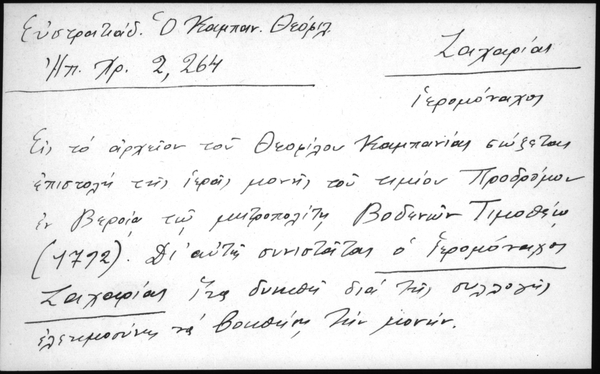 Εὐστρατιάδ. Ὁ Καμπαν. Θεόφιλ.
Ἠπ. Χρ. 2, 264
Ζαχαρίας
ἱερομόναχος
Εἰς τὸ ἀρχεῖον τοῦ Θεοφίλου Καμπανίας σώζεται
ἐπιστολὴ τῆς ἱερᾶς μονῆς τοῦ τιμίου Προδρόμου
ἐν Βεροίᾳ τῷ μητροπολίτῃ Βοδενῶν Τιμοθέῳ
(1792). Δι' αὐτῆς συνιστᾶται ὁ ἱερομόναχος
Ζαχαρίας ἵνα δυνηθῇ διὰ τῆς συλλογῆς
ἐλεημοσύνης νὰ βοηθήσῃ τὴν μονήν.